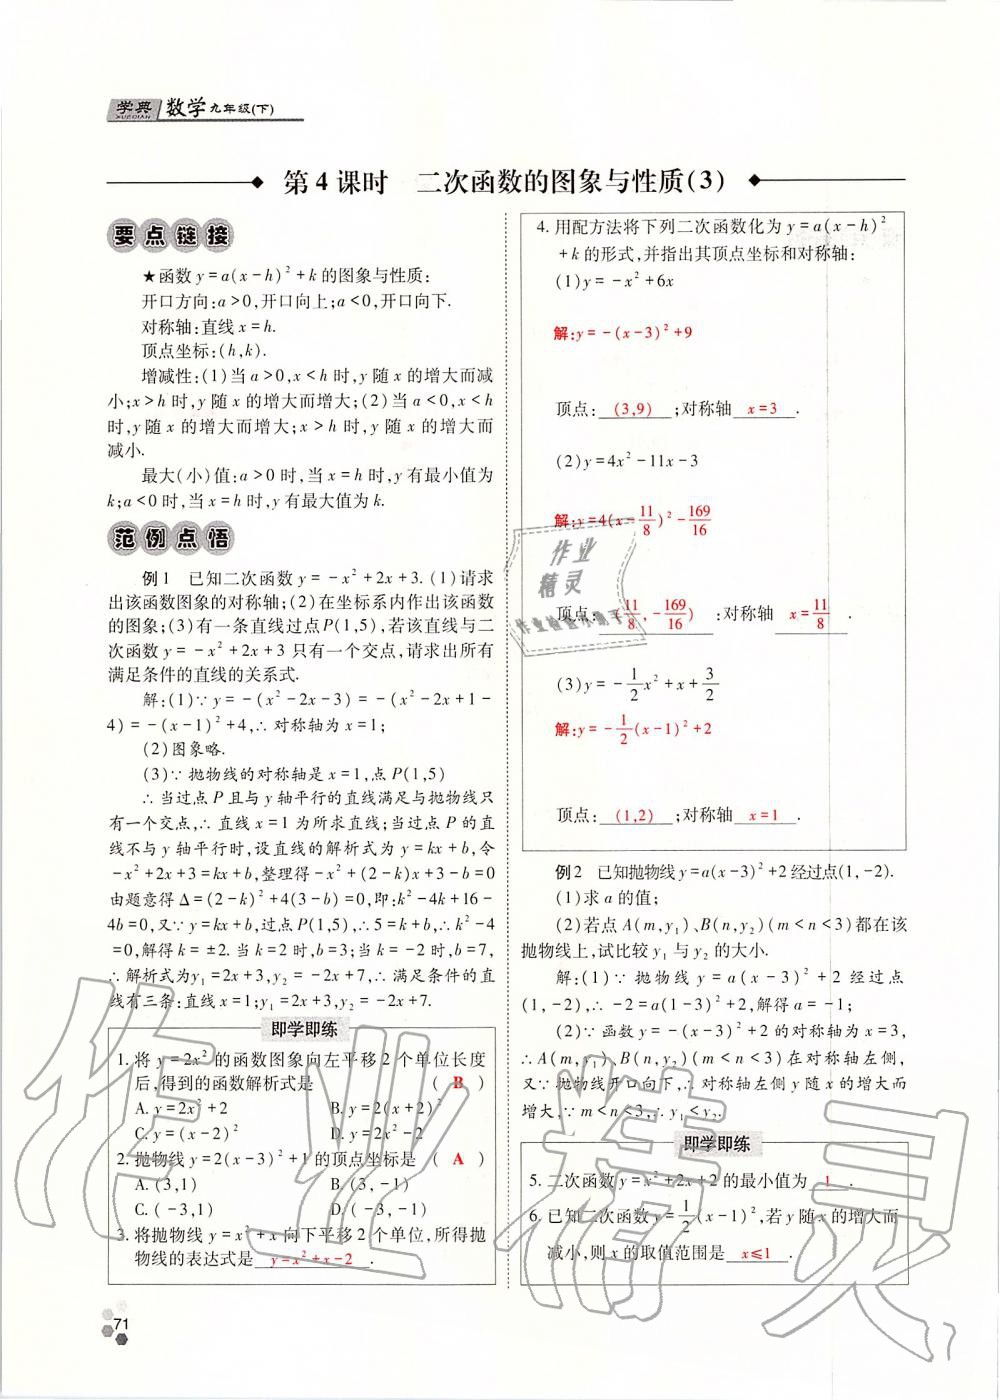 学典 数学 九年级(下)
XUEDIAN
第4课时 二次函数的图象与性质(3)
要点链接
★函数y=a(x-h)²+k的图象与性质:
开口方向:a>0,开口向上;a<0,开口向下.
对称轴:直线x=h.
顶点坐标:(h,k).
增减性:(1)当a>0,x<h时,y随x的增大而减
小;x>h时,y随x的增大而增大;(2)当a<0,x<h
时,y随x的增大而增大;x>h时,y随x的增大而
减小.
最大(小)值:a>0时,当x=h时,y有最小值为
k;a<0时,当x=h时,y有最大值为k.
范例点悟
例1 已知二次函数y=-x²+2x+3.(1)请求
出该函数图象的对称轴;(2)在坐标系内作出该函数
的图象;(3)有一条直线过点P(1,5),若该直线与二
次函数y=-x²+2x+3只有一个交点,请求出所有
满足条件的直线的关系式.
解:(1)∵y=-(x²-2x-3)=-(x²-2x+1-
4)=-(x-1)²+4,∴对称轴为x=1;
(2)图象略.
(3)∵抛物线的对称轴是x=1,点P(1,5)
∴当过点P且与y轴平行的直线满足与抛物线只
有一个交点,∴直线x=1为所求直线;当过点P的直
线不与y轴平行时,设直线的解析式为y=kx+b,令
-x²+2x+3=kx+b,整理得-x²+(2-k)x+3-b=0
由题意得Δ=(2-k)²+4(3-b)=0,即:k²-4k+16-
4b=0,又∵y=kx+b,过点P(1,5),∴5=k+b,∴k²-4
=0,解得k=±2.当k=2时,b=3;当k=-2时,b=7,
∴解析式为y₁=2x+3,y₂=-2x+7,∴满足条件的直
线有三条:直线x=1;y₁=2x+3,y₂=-2x+7.
即学即练
1. 将y=2x²的函数图象向左平移2个单位长度
后,得到的函数解析式是 ( B )
A. y=2x²+2 B. y=2(x+2)²
C. y=(x-2)² D. y=2x²-2
2. 抛物线y=2(x-3)²+1的顶点坐标是 ( A )
A. (3,1) B. (3,-1)
C. (-3,1) D. (-3,-1)
3. 将抛物线y=x²+x向下平移2个单位,所得抛
物线的表达式是 y=x²+x-2 .
71
4. 用配方法将下列二次函数化为y=a(x-h)²
+k的形式,并指出其顶点坐标和对称轴:
(1)y=-x²+6x
解:y=-(x-3)²+9
顶点: (3,9) ;对称轴 x=3 .
(2)y=4x²-11x-3
解:y=4(x-11/8)²-169/16
顶点: (11/8,-169/16) ;对称轴 x=11/8 .
(3)y=-1/2x²+x+3/2
解:y=-1/2(x-1)²+2
顶点: (1,2) ;对称轴 x=1 .
例2 已知抛物线y=a(x-3)²+2经过点(1,-2).
(1)求a的值;
(2)若点A(m,y₁)、B(n,y₂)(m<n<3)都在该
抛物线上,试比较y₁与y₂的大小.
解:(1)∵抛物线y=a(x-3)²+2经过点
(1,-2),∴-2=a(1-3)²+2,解得a=-1;
(2)∵函数y=-(x-3)²+2的对称轴为x=3,
∴A(m,y₁)、B(n,y₂)(m<n<3)在对称轴左侧,
又∵抛物线开口向下,∴对称轴左侧y随x的增大而
增大,∵m<n<3,∴y₁<y₂.
即学即练
5. 二次函数y=x²+2x+2的最小值为 1 .
6. 已知二次函数y=1/2(x-1)²,若y随x的增大而
减小,则x的取值范围是 x≤1 .
作业精灵
作业
精灵